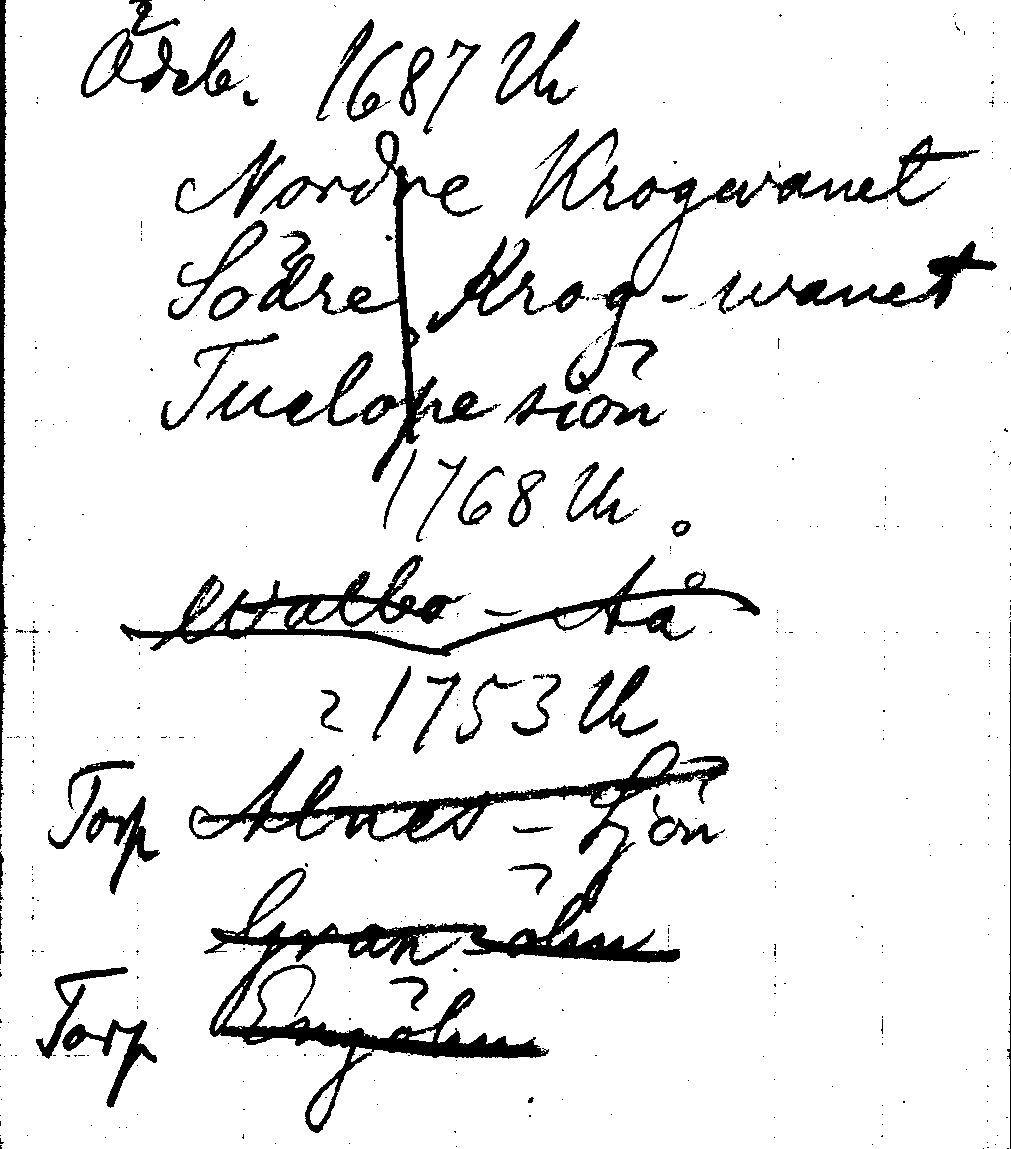 Ödeb. 1687 Uh
Nordre Krogwanet
Södre Krog-wanet
Tuelope siön
1768 Uh
Walbo-Åå
1753 Uh
Torp Alnes-Sjön
Gran-öhn
Torp Engöhn